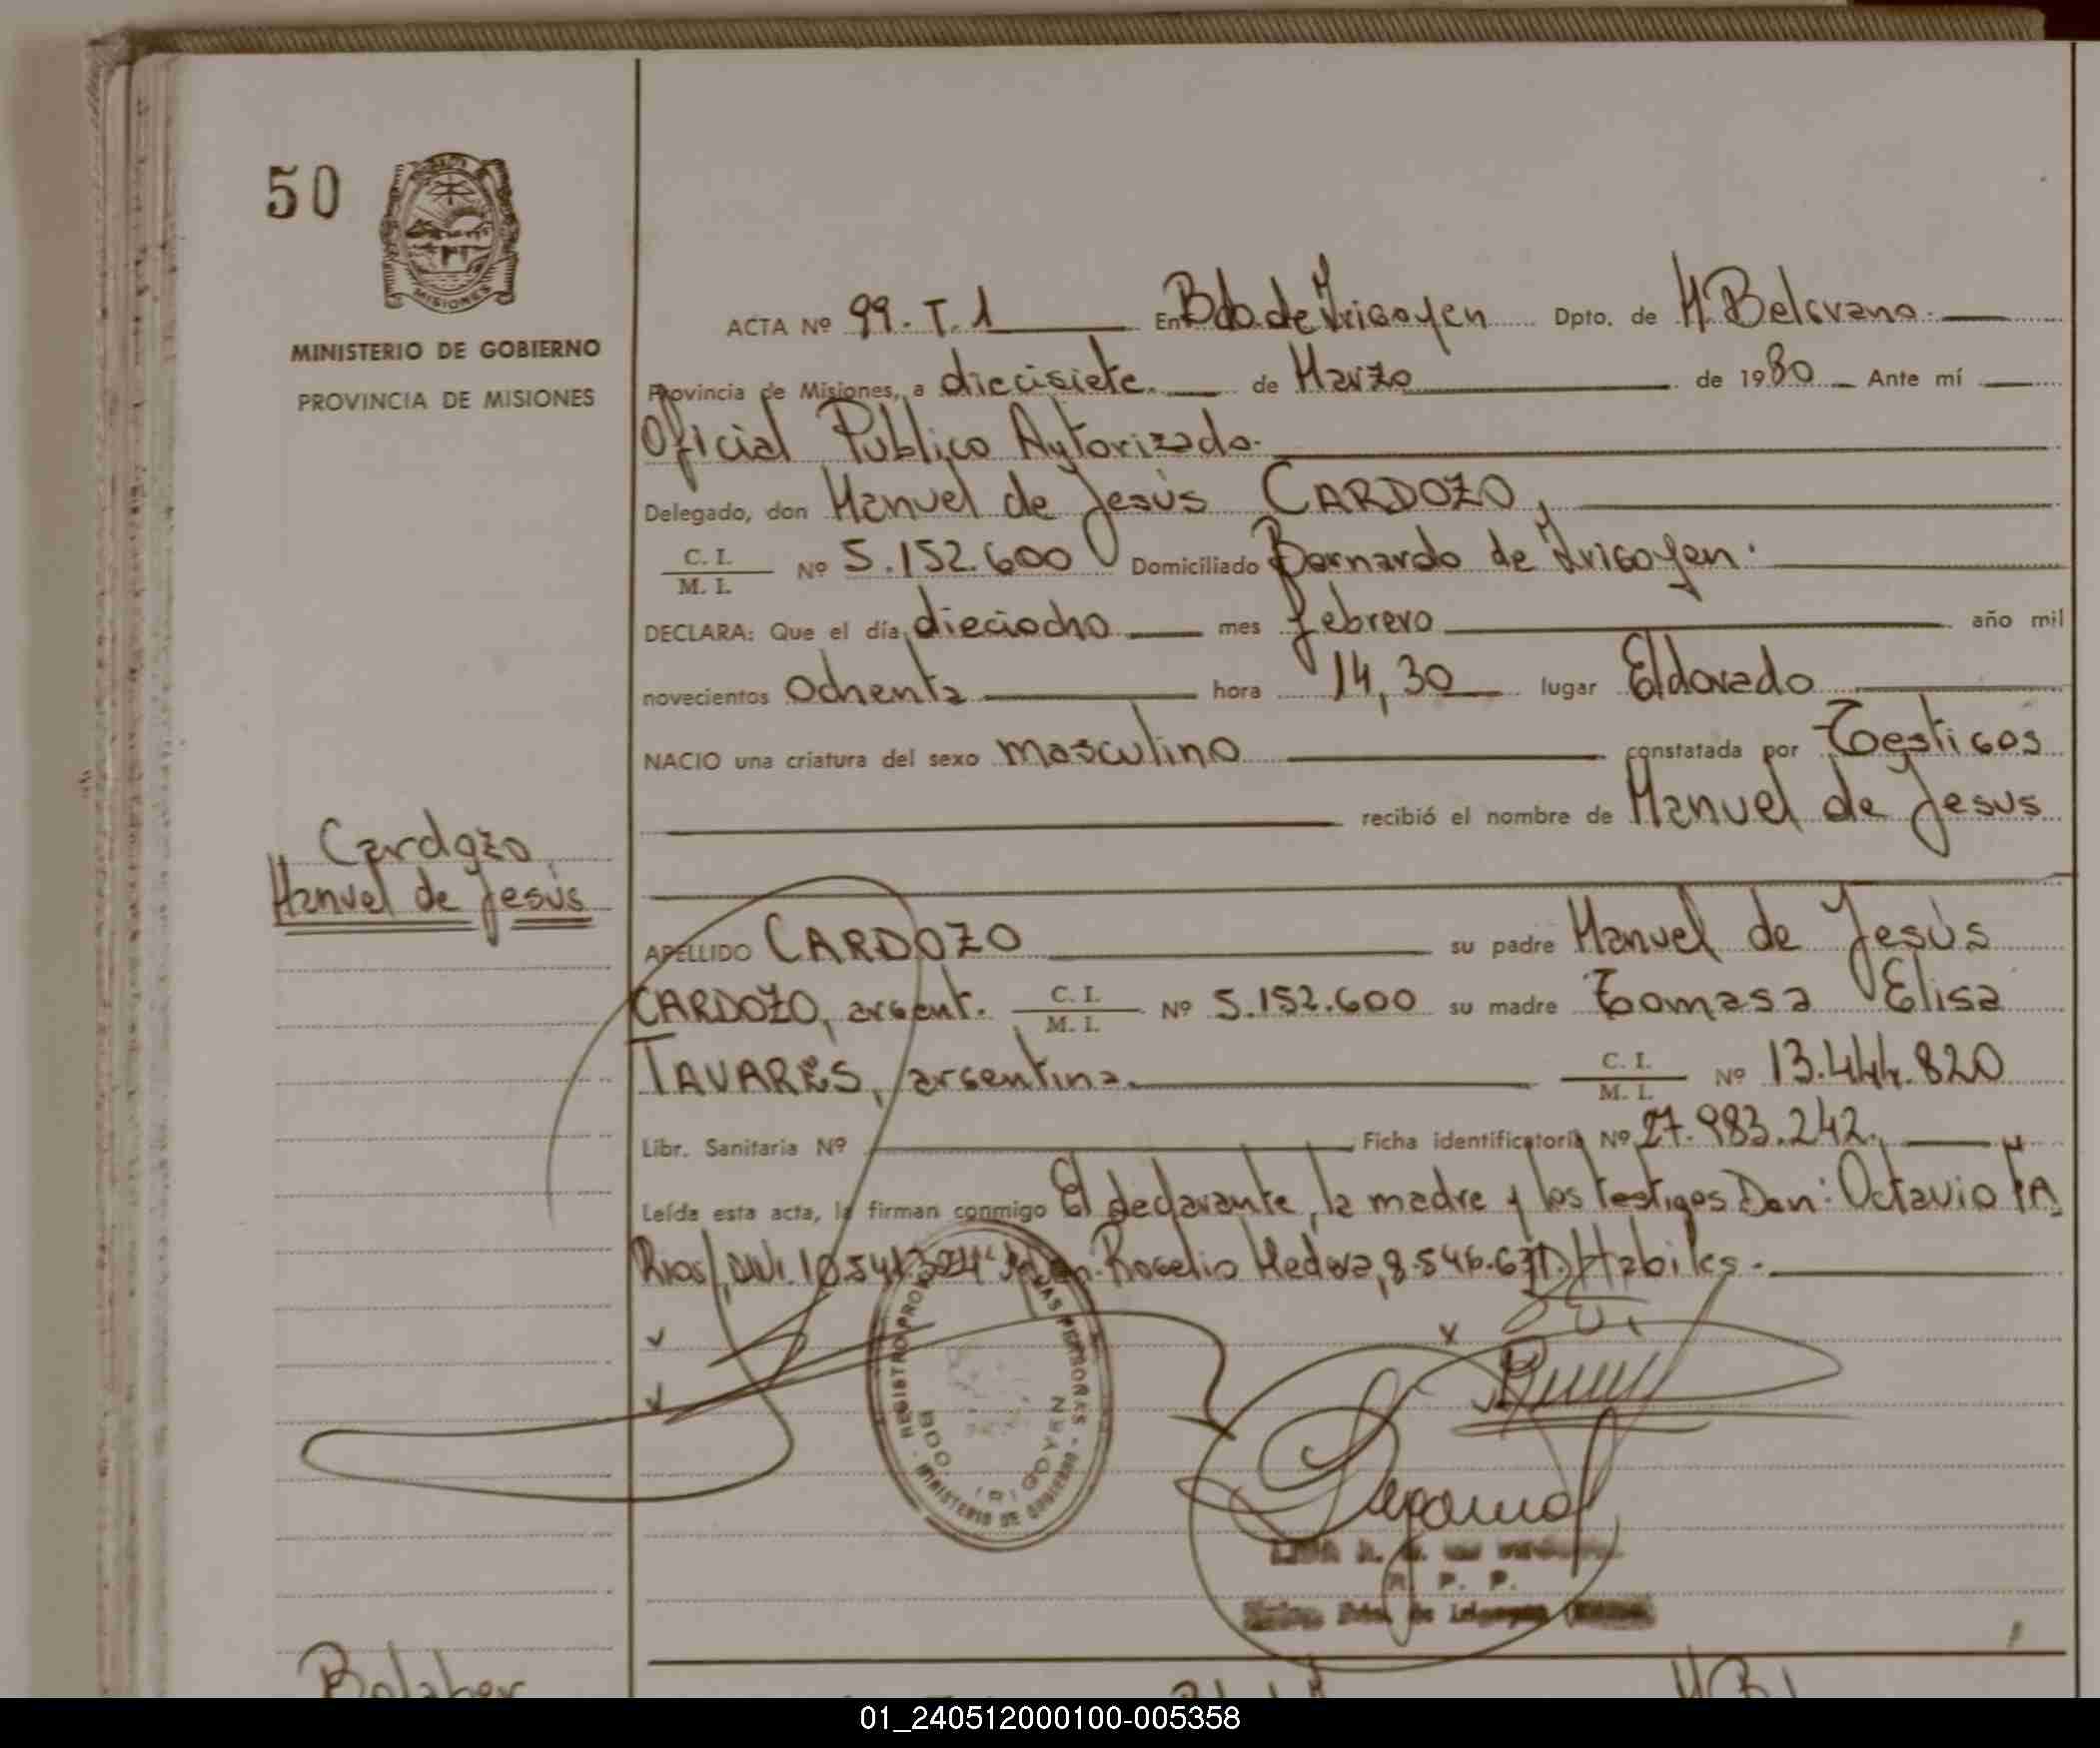 50
MISIONES
MINISTERIO DE GOBIERNO
PROVINCIA DE MISIONES
ACTA Nº 99. T. 1 En Bdo. de Irigoyen Dpto. de M. Belgrano.
Provincia de Misiones, a diecisiete. de Marzo de 1980 Ante mí
Oficial Publico Autorizado.
Delegado, don Manuel de Jesús CARDOZO,
C. I.
M. I. Nº 5.152.600 Domiciliado Bernardo de Irigoyen.
DECLARA: Que el día dieciocho mes febrero año mil
novecientos ochenta hora 14,30 lugar Eldorado
NACIO una criatura del sexo masculino constatada por Testigos
recibió el nombre de Manuel de Jesus
Cardozo,
Manuel de Jesús
APELLIDO CARDOZO su padre Manuel de Jesús
CARDOZO, argent. C. I. M. I. Nº 5.152.600 su madre Tomasa Elisa
TAVARES, argentina. C. I. M. I. Nº 13.444.820
Libr. Sanitaria Nº Ficha identificatoria Nº 27.983.242.
Leída esta acta, la firman conmigo El declarante, la madre y los testigos Don: Octavio
Rios, Rogelio Habiles.
REGISTRO PROV. DE LAS PERSONAS - MINISTERIO DE GOBIERNO -
BDO IRIGOYEN
P. P.
01_240512000100-005358